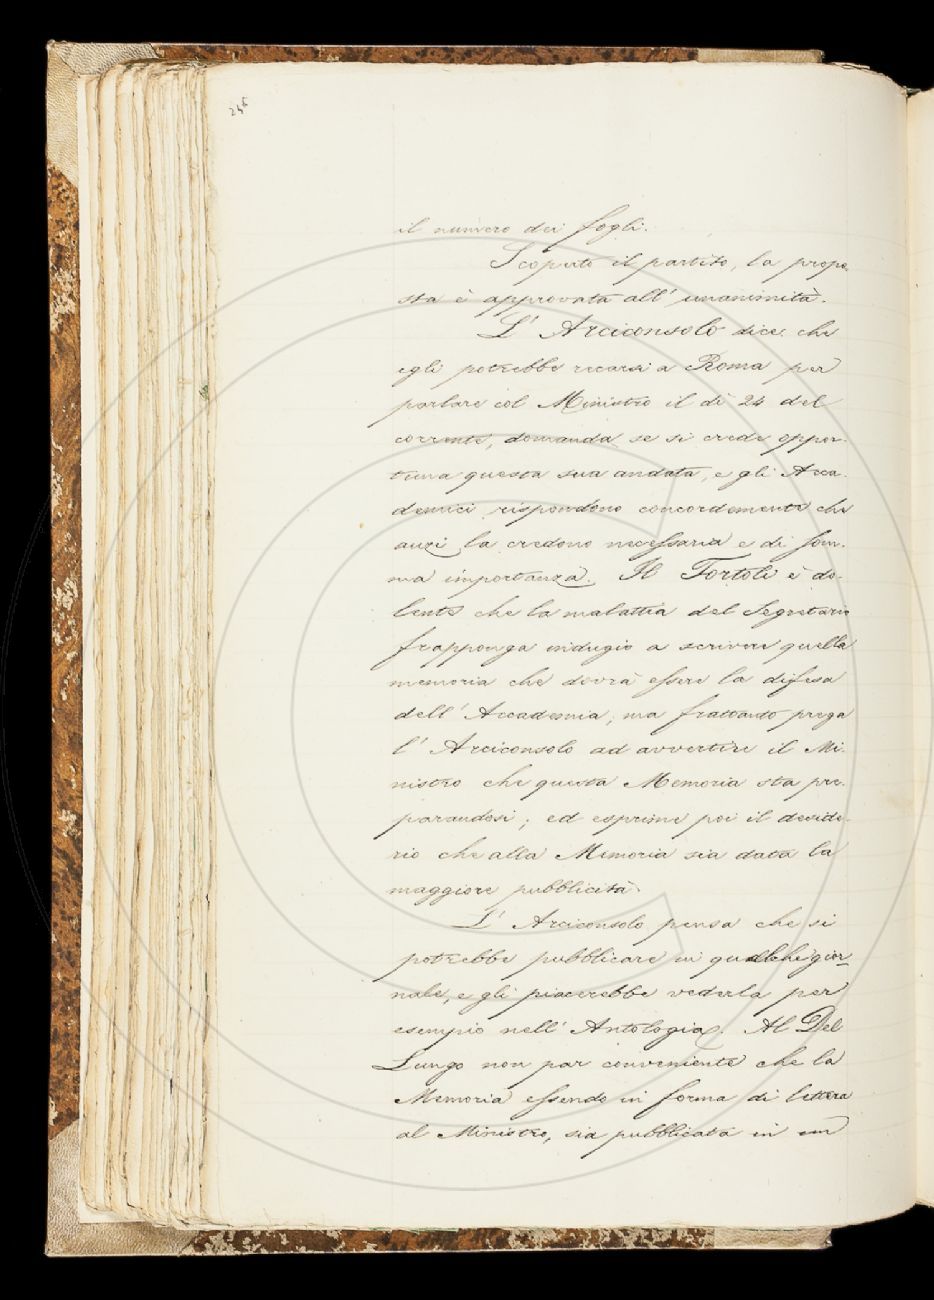 246
il numero dei fogli.
Scoperto il partito, la propo
sta è approvata all' unanimità.
L' Arciconsolo dice che
egli potrebbe recarsi a Roma per
parlare col Ministro il dì 24 del
corrente, domanda se si crede oppor-
tuna questa sua andata, e gli Acca-
demici rispondono concordemente che
anzi la credono necessaria e di som-
ma importanza. Il Tortoli è do-
lente che la malattia del Segretario
frapponga indugio a scrivere quella
memoria che dovrà essere la difesa
dell' Accademia; ma frattanto prega
l' Arciconsolo ad avvertire il Mi-
nistro che questa Memoria sta pre-
parandosi; ed esprime poi il deside-
rio che alla Memoria sia data la
maggiore pubblicità.
L' Arciconsolo pensa che si
potrebbe pubblicare in qualche gior-
nale, e gli piacerebbe vederla per
esempio nell' Antologia. Al Del
Lungo non par conveniente che la
Memoria essendo in forma di lettera
al Ministro, sia pubblicata in un